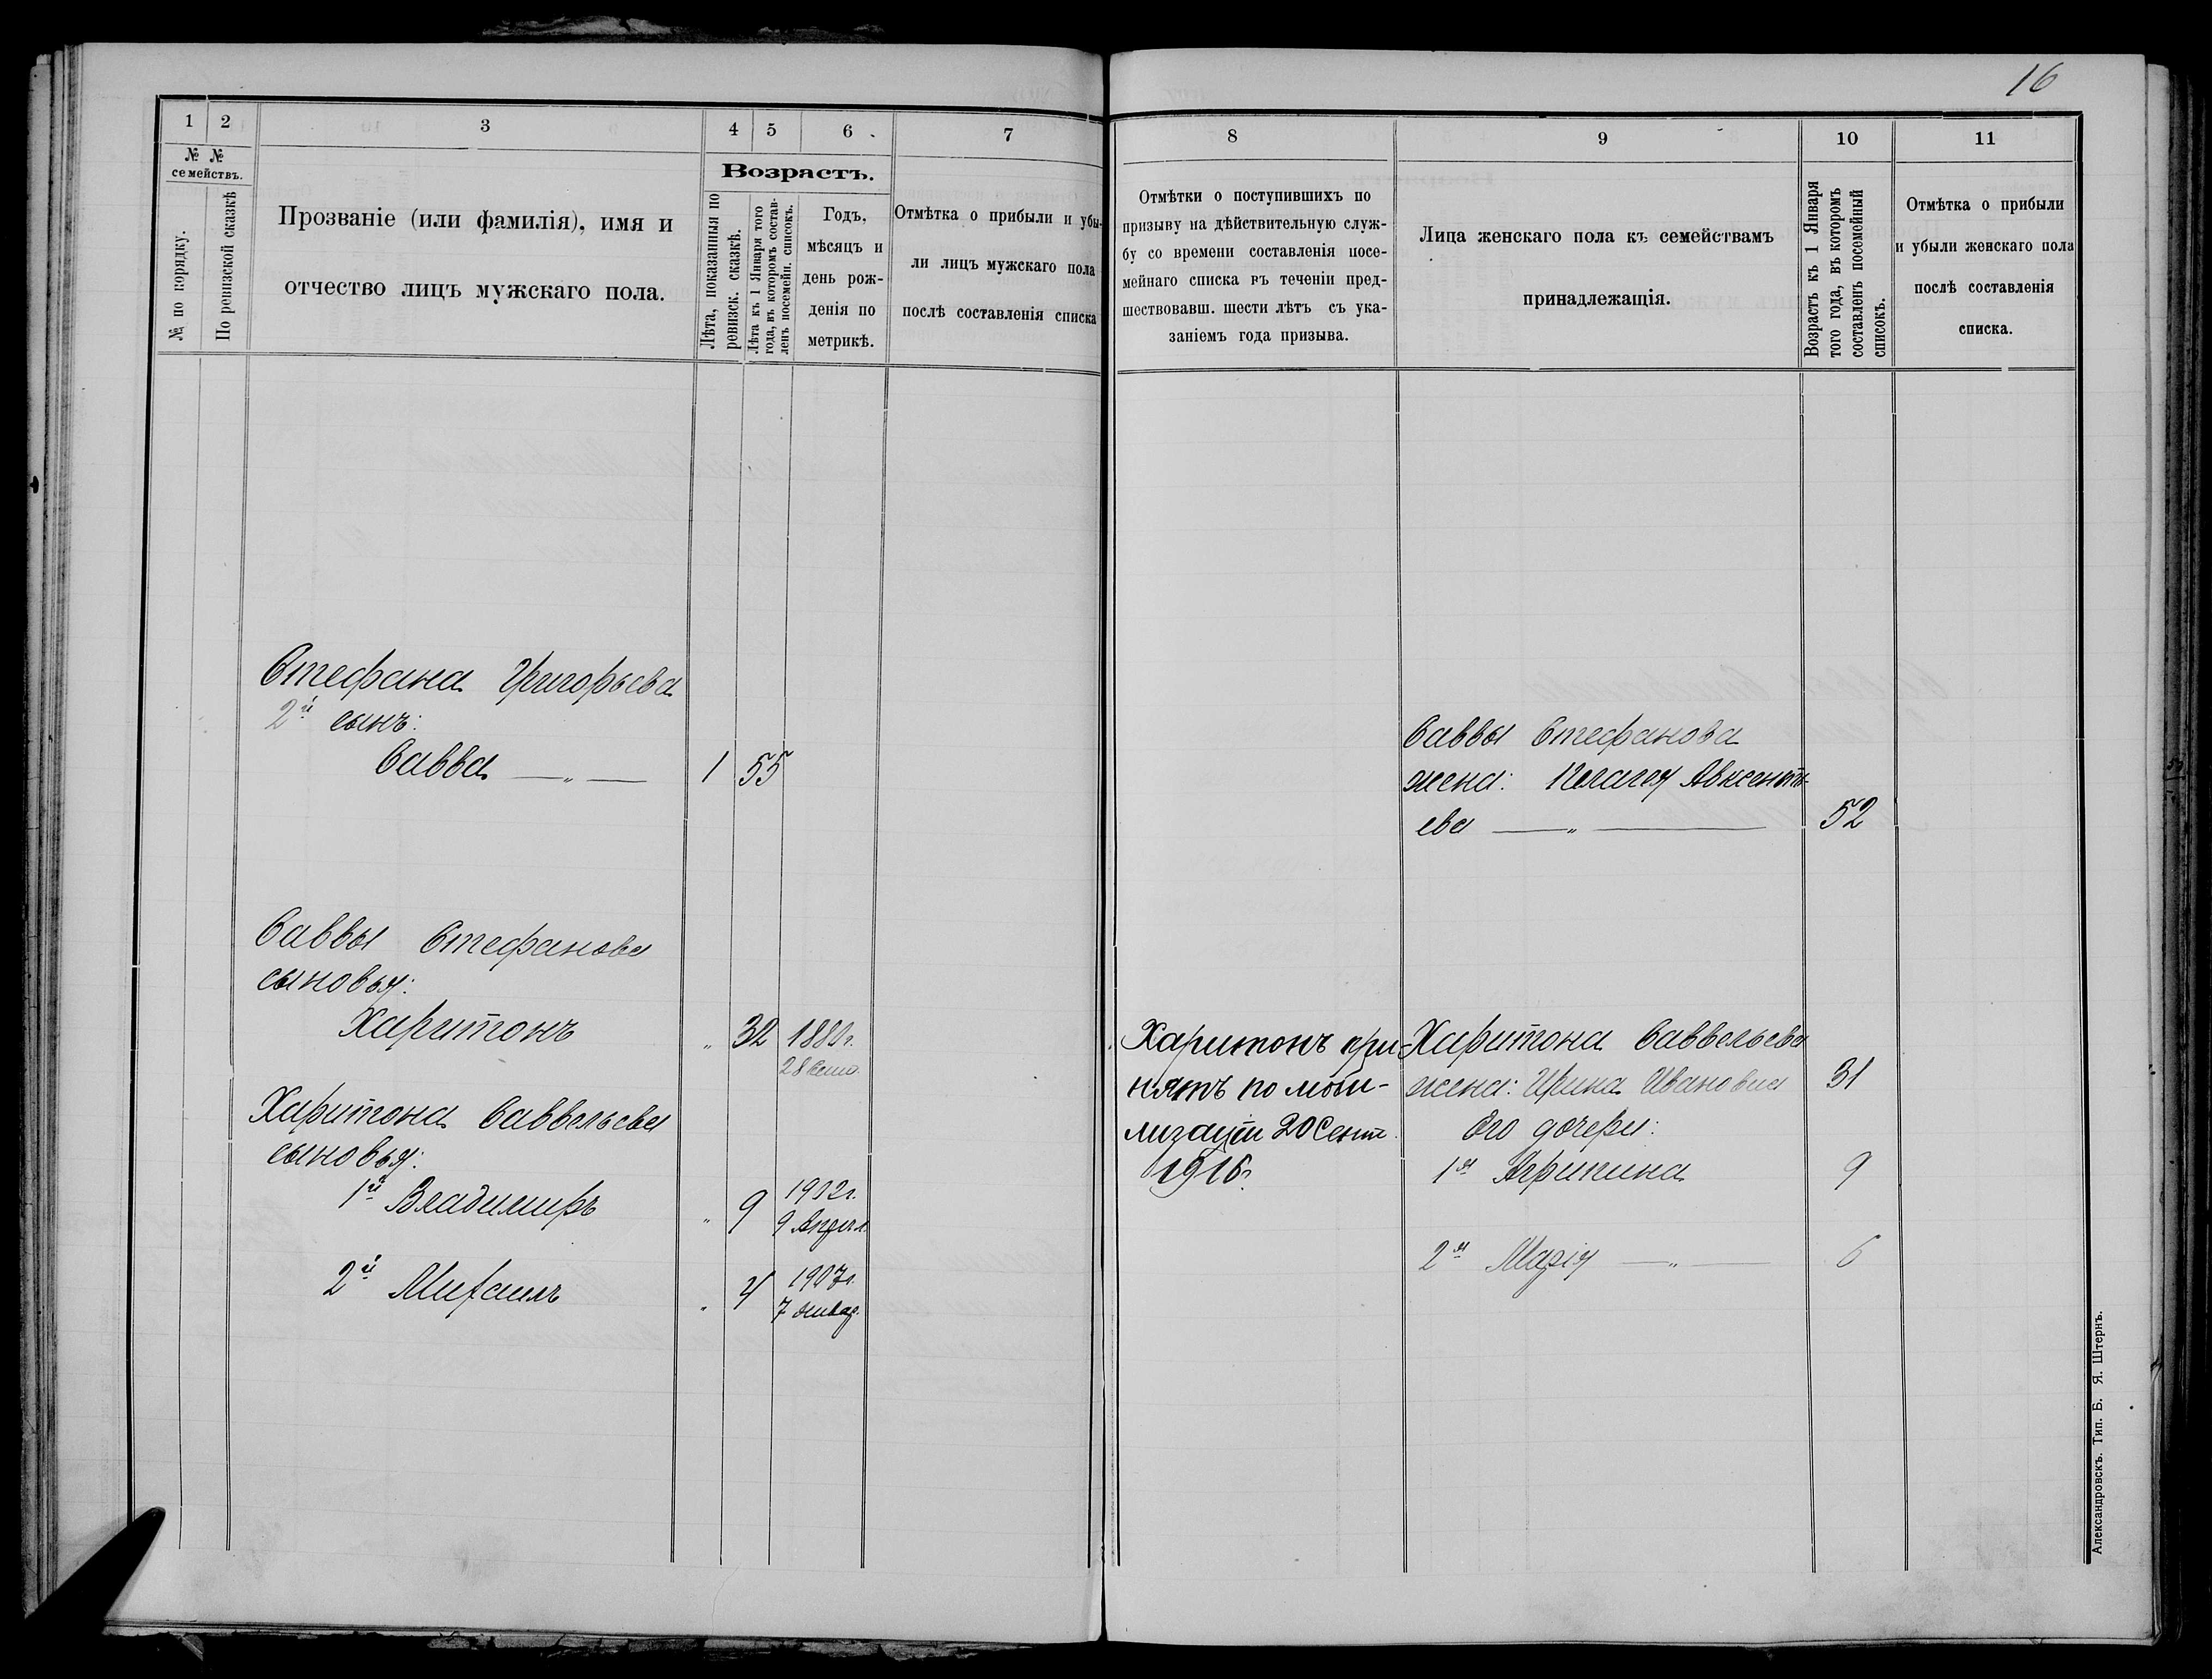 16
1
2
3
4
5
6
7
№ №
семействъ.
№ по порядку.
По ревизской сказкѣ
Прозваніе (или фамилія), имя и
отчество лицъ мужскаго пола.
Возрастъ.
Лѣта, показанныя по
ревизск. сказкѣ.
Лѣта къ 1 Января того
года, въ которомъ состав-
ленъ посемейн. списокъ.
Годъ,
мѣсяцъ и
день рож-
денія по
метрикѣ.
Отмѣтка о прибыли и убы-
ли лицъ мужскаго пола
послѣ составленія списка
Стефана Григорьева
2й сынъ:
Савва — „ — 1 55
Саввы Стефанова
сыновья:
Харитонъ „ 32 1880 г.
28 Сент.
Харитона Саввельева
сыновья:
1й Владимиръ „ 9 1902 г.
9 Апрел.
2й Михаилъ „ 4 1907 г.
7 Январ.
8
9
10
11
Отмѣтки о поступившихъ по
призыву на дѣйствительную служ-
бу со времени составленія посе-
мейнаго списка въ теченіи пред-
шествовавш. шести лѣтъ съ ука-
заніемъ года призыва.
Лица женскаго пола къ семействамъ
принадлежащія.
Возрастъ къ 1 Января
того года, въ которомъ
составленъ посемейный
списокъ.
Отмѣтка о прибыли
и убыли женскаго пола
послѣ составленія
списка.
Саввы Стефанова
жена: Пелагея Авксенть-
ева — „ — 52
Харитонъ при-
нятъ по моби-
лизаціи 20 Сент.
1916 г.
Харитона Саввельева
жена: Ирина Ивановна 31
Его дочери:
1я Агрипина 9
2я Марія — „ — 6
Александровскъ. Тип. Б. Я. Штернъ.